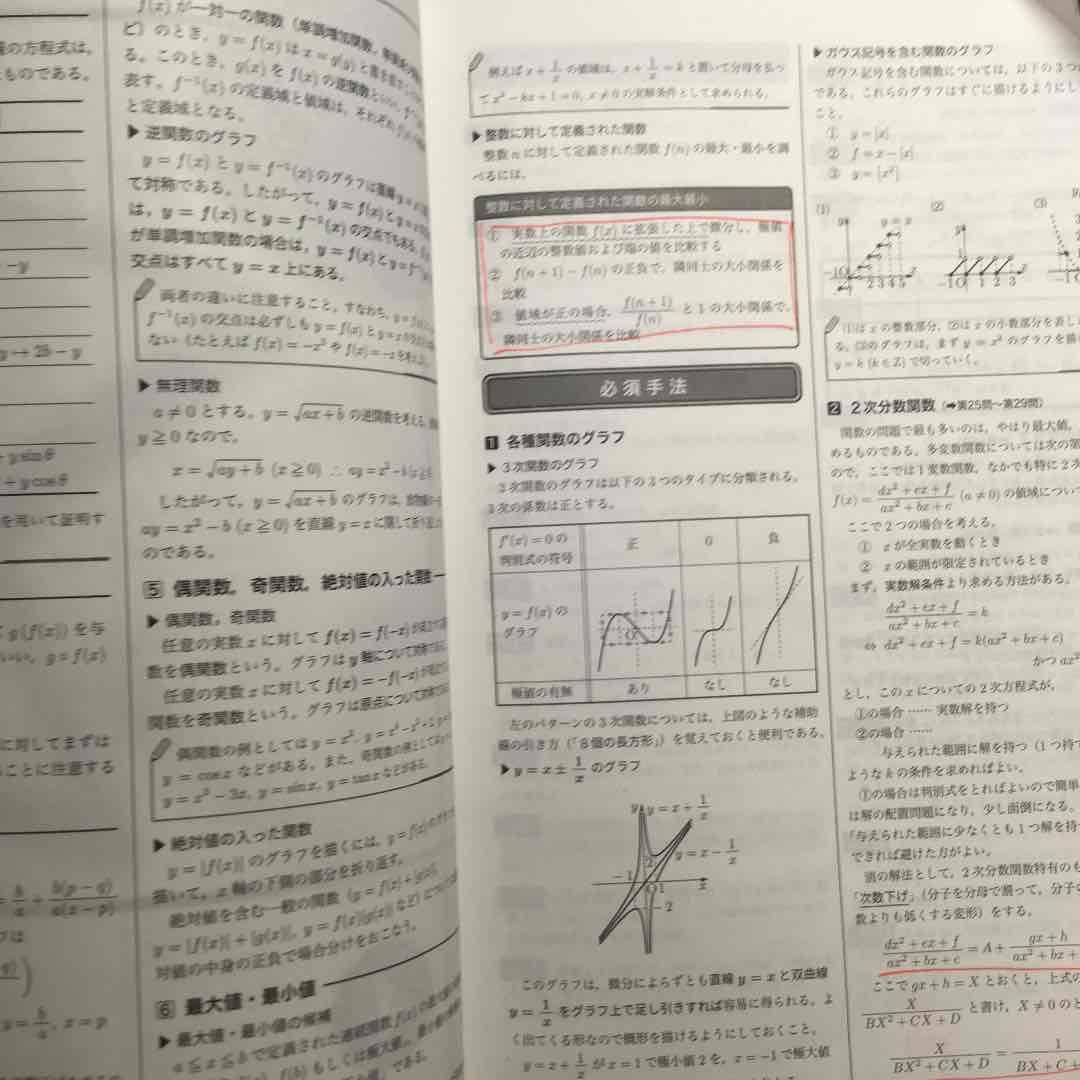 の方程式は,
ものである。
-y
y→2b-y
+y sin θ
+y cos θ
を用いて証明す
g(f(x)) を与
いい, g=f(x)
に対してまずは
ことに注意する
f(x) が一対一の関数 (単調増加関数,
ど) のとき, y=f(x) は x=g(y) と書き
る。このとき, g(x) を f(x) の逆関数といい,
表す。f⁻¹(x) の定義域と値域は, それぞれ
と定義域となる。
▶ 逆関数のグラフ
y=f(x) と y=f⁻¹(x) のグラフは直線
て対称である。したがって, y=f(x) と y=x
は, y=f(x) と y=f⁻¹(x) の交点でもある。
が単調増加関数の場合は, y=f(x) と y=f⁻¹
交点はすべて y=x 上にある。
両者の違いに注意すること。すなわち,
f⁻¹(x) の交点は必ずしも y=f(x) と y=x
ない (たとえば f(x)=-x³ や f(x)=-x
▶ 無理関数
a≠0 とする。y=√(ax+b) の逆関数を考える。
y≧0 なので,
x=√(ay+b) (x≧0) ∴ ay=x²-b
したがって, y=√(ax+b) のグラフは,
ay=x²-b (x≧0) を直線 y=x に関して折り
のである。
5 偶関数, 奇関数, 絶対値の入った関数
▶ 偶関数, 奇関数
任意の実数 x に対して f(x)=f(-x) が
数を偶関数という。グラフは y 軸について対称
任意の実数 x に対して f(x)=-f(-x) が
関数を奇関数という。グラフは原点について対称
偶関数の例としては y=x²,
y=cos x などがある。また, 奇関数の例として
y=x³-3x, y=sin x, y=tan x などがある。
▶ 絶対値の入った関数
y=|f(x)| のグラフを描くには, y=f(x) の
描いて, x 軸の下側の部分を折り返す。
絶対値を含む一般の関数 (y=f(x)+|g(x)|,
y=|f(x)|+|g(x)|, y=f(x)|g(x)| など)
対値の中身の正負で場合分けをおこなう。
6 最大値・最小値
▶ 最大値・最小値の候補
a≦x≦b で定義された連続関数 f(x) の
例えば x+1/x の値域は, x+1/x=k と置いて分母を払っ
て x²-kx+1=0, x≠0 の実解条件として求められる。
▶ 整数に対して定義された関数
整数 n に対して定義された関数 f(n) の最大・最小を調
べるには,
整数に対して定義された関数の最大最小
① 実数上の関数 f(x) に拡張した上で微分し, 極値
の近辺の整数値および端の値を比較する
② f(n+1)-f(n) の正負で, 隣同士の大小関係を
比較
③ 値域が正の場合, f(n+1)/f(n) と 1 の大小関係で,
隣同士の大小関係を比較
必須手法
1 各種関数のグラフ
▶ 3次関数のグラフ
3次関数のグラフは以下の3つのタイプに分類される。
3次の係数は正とする。
f'(x)=0 の
判別式の符号
正
0
負
y=f(x) の
グラフ
極値の有無
あり
なし
なし
左のパターンの3次関数については, 上図のような補助
線の引き方 (「8個の長方形」) を覚えておくと便利である。
▶ y=x±1/x のグラフ
y
y=x+1/x
y=x-1/x
2
-1
O
1
x
-2
このグラフは, 微分によらずとも直線 y=x と双曲線
y=1/x をグラフ上で足し引きすれば容易に得られる。よ
く出てくる形なので概形を描けるようにしておくこと。
y=x+1/x が x=1 で極小値2を, x=-1 で極大値
▶ ガウス記号を含む関数のグラフ
ガウス記号を含む関数については, 以下の3つ
である。これらのグラフはすぐに描けるようにし
こと。
① y=[x]
② f=x-[x]
③ y=[x²]
(1)
(2)
(3)
y
y=x
-1 O 2 3 4 5 x
y
-1 O 1 2 3 x
(1)は x の整数部分, (2)は x の小数部分を表し
る。(3)のグラフは, まず y=x² のグラフを描
y=k (k∈Z) で切っていく。
2 2次分数関数 (➡第25問~第29問)
関数の問題で最も多いのは, やはり最大値,
めるものである。多変数関数については次の第
ので, ここでは1変数関数, なかでも特に2次
f(x)=(dx²+ex+f)/(ax²+bx+c) (a≠0) の値域につい
ここで2つの場合を考える。
① x が全実数を動くとき
② x の範囲が限定されているとき
まず, 実数解条件より求める方法がある。
(dx²+ex+f)/(ax²+bx+c)=k
⇔ dx²+ex+f=k(ax²+bx+c)
かつ ax²
とし, この x についての2次方程式が,
①の場合 …… 実数解を持つ
②の場合 ……
与えられた範囲に解を持つ (1つ持つ
ような k の条件を求めればよい。
①の場合は判別式をとればよいので簡単
は解の配置問題になり, 少し面倒になる。
「与えられた範囲に少なくとも1つ解を持
できれば避けた方がよい。
別の解法として, 2次分数関数特有のも
「次数下げ」(分子を分母で割って, 分子の
数よりも低くする変形) をする。
(dx²+ex+f)/(ax²+bx+c)=A+(gx+h)/(ax²+bx+
ここで gx+h=X とおくと, 上式の
X/(BX²+CX+D) と書け, X≠0 のと
X/(BX²+CX+D)=1/(BX+C+